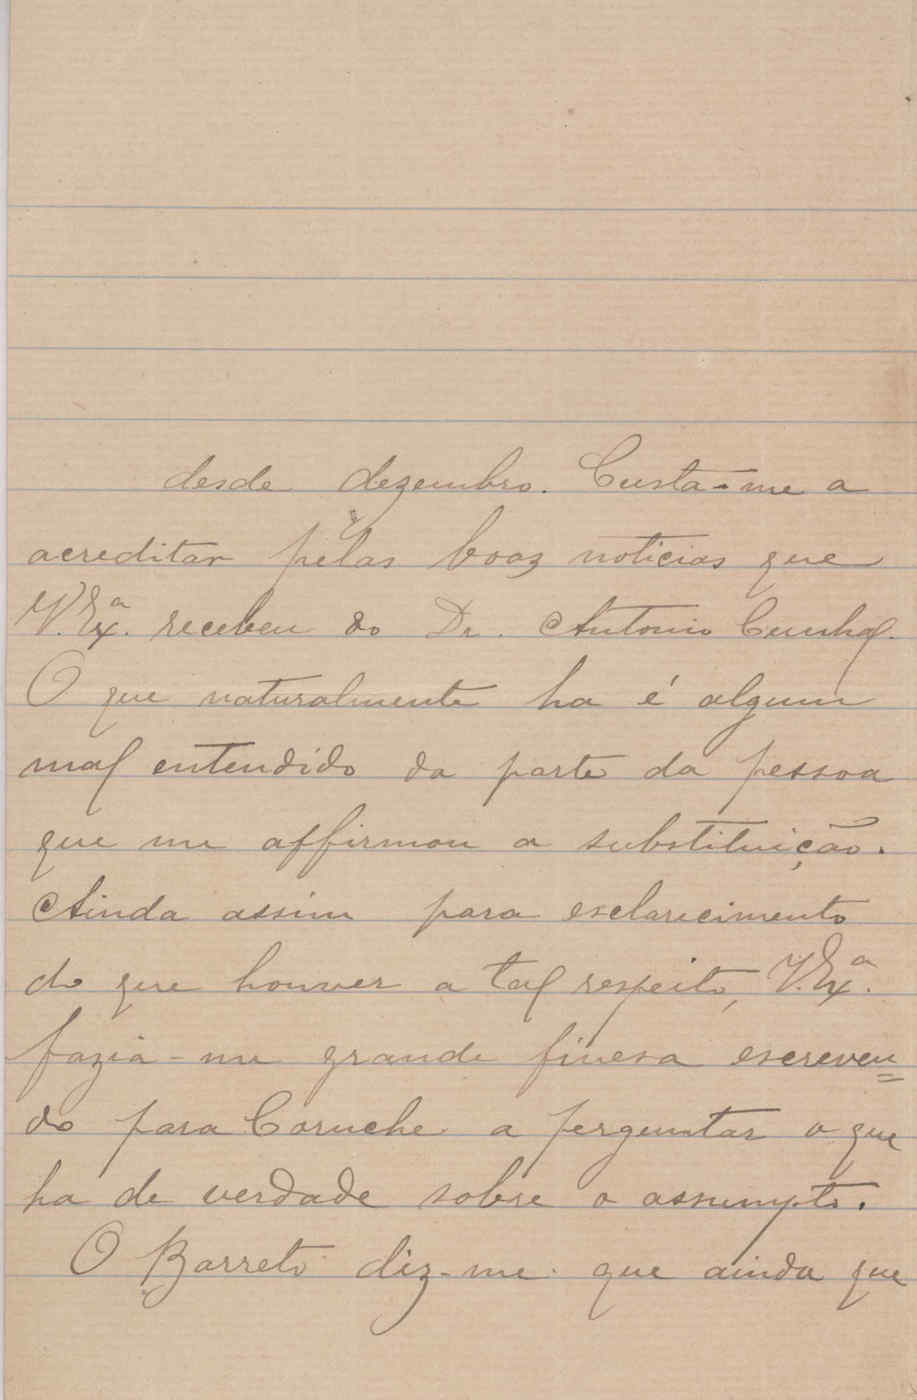 desde dezembro. Custa-me a
acreditar pelas boas noticias que
V. Exª. recebeu do Dr. Antonio Cunhal.
O que naturalmente ha é algum
mal entendido da parte da pessoa
que me affirmou a substituição.
Ainda assim para esclarecimento
do que houver a tal respeito, V. Exª.
fazia-me grande finesa escreven=
do para Coruche a perguntar o que
ha de verdade sobre o assumpto.
O Barreto diz-me que ainda que